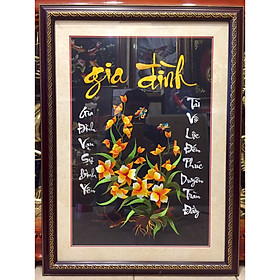 gia đình
Gia
Đình
Vạn
Sự
Bình
Yên
Tài
Vô
Lộc
Đến
Phúc
Duyên
Tràn
Đầy